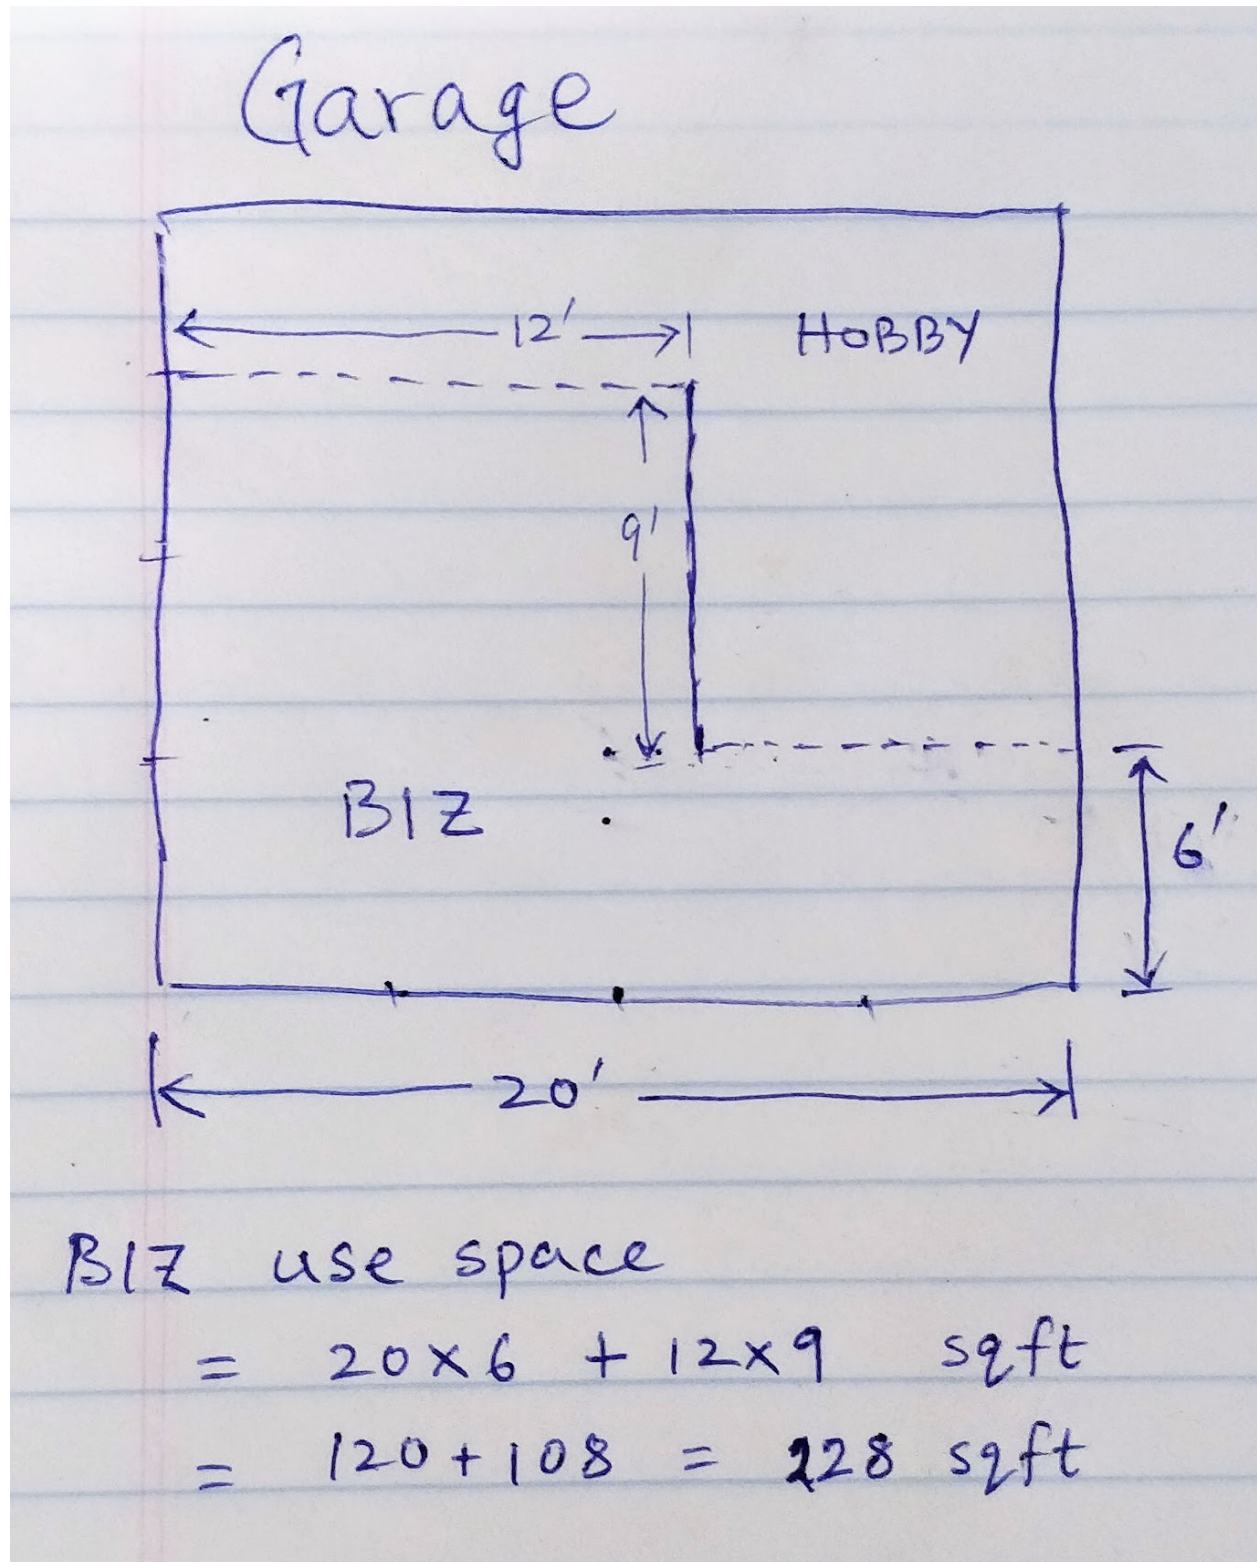 Garage
12'
HOBBY
9'
BIZ
6'
20'
BIZ use space
= 20x6 + 12x9 sqft
= 120+108 = 228 sqft